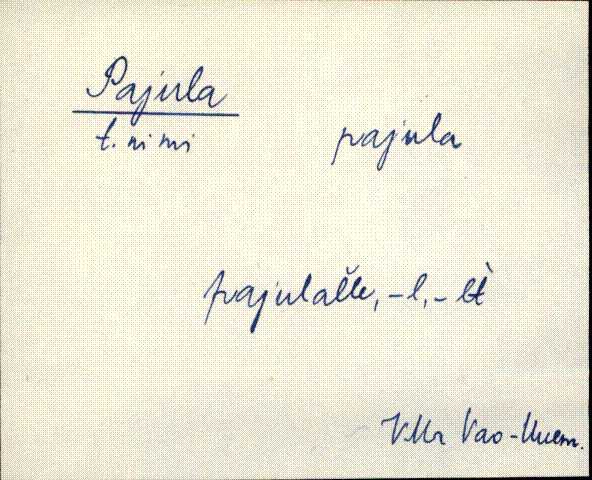 Pajula
t. nimi
pajula
pajulalle, -l, -lt
VMr Vao-Uuem.